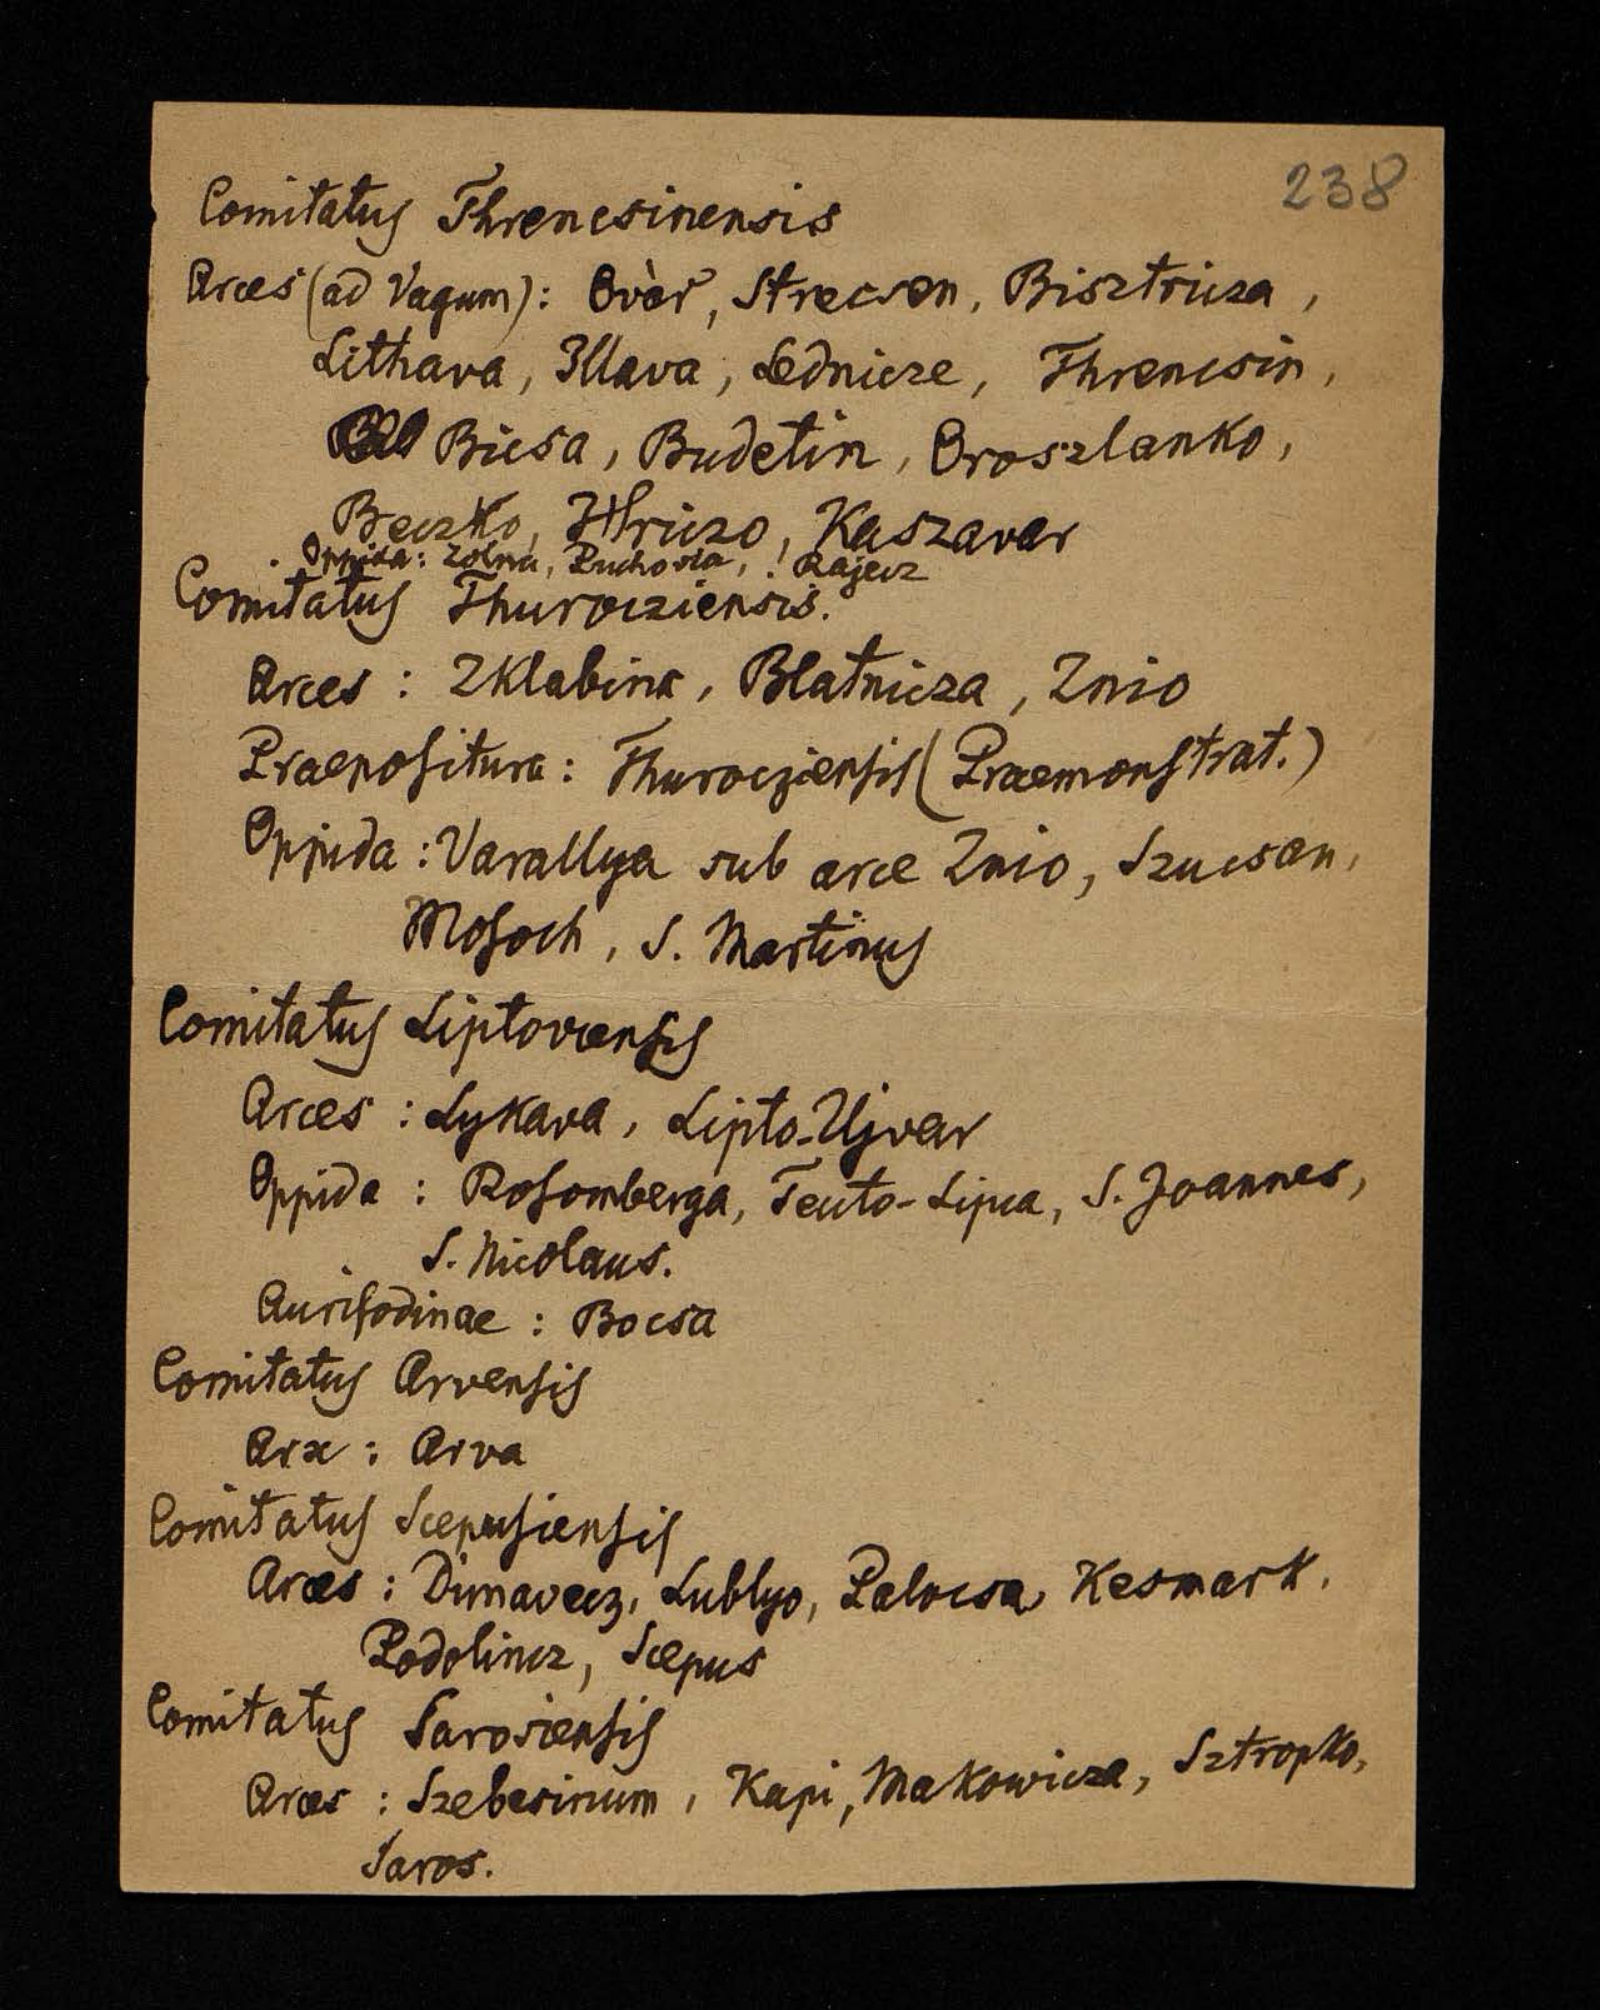 238
Comitatus Threncsinensis
Arces (ad Vagum): Ovàr, Strecsen, Bisztricza,
Lithava, Illava, Lednicze, Threncsin,
Bicsa, Budetin, Oroszlanko,
Beczko, Hriczo, Kaszavar
Oppida: Zolna, Puchovia, ! Rajecz
Comitatus Thurocziensis.
Arces : Zklabina, Blatnicza, Znio
Praepositura: Thurocziensis (Praemonstrat.)
Oppida : Varallya sub arce Znio, Szucsan,
Mosoch, S. Martinus
Comitatus Liptoviensis
Arces : Lykava, Lipto-Ujvar
Oppida : Rosomberga, Teuto-Lipca, S. Joannes,
S. Nicolaus.
Aurifodinae : Bocsa
Comitatus Arvensis
Arx : Arva
Comitatus Scepusiensis
Arces : Dunavecz, Lublyo, Palocsa, Kesmark,
Podolincz, Scepus
Comitatus Sarosiensis
Arces : Szebesinum, Kapi, Makowicza, Sztropko,
Saros.